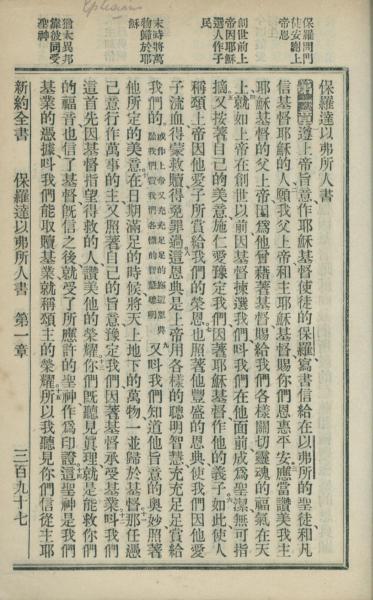 Ephesians
保羅問門
徒安謝上
帝恩
創世前上
帝因耶穌
選人作子
民
末時將萬
物歸於耶
穌
猶太異邦
靠彼同受
聖神
保羅達以弗所人書
第一章遵上帝旨意、作耶穌基督使徒的保羅寫書信給在以弗所的聖徒和凡
信基督耶穌的人、願我父上帝和主耶穌基督賜你們恩惠平安、應當讚美我主
耶穌基督的父上帝、因爲他曾藉著基督賜給我們各樣關切靈魂的福氣、在天
上、就如上帝在創世以前、因基督揀選我們、叫我們在他面前成爲聖潔、無可指
摘、又按著自己的美意施仁愛豫定我們因著耶穌基督作他的義子、如此使人
稱頌上帝因他愛子所賞給我們的榮恩、也照著他豐盛的恩典、使我們因他愛
子流血得蒙救贖、得免罪過、這恩典是上帝用各樣的聰明智慧充充足足賞給
我們的、或作上帝又充充足足的施這恩典給我們賞我們各樣的智慧聰明又叫我們知道他旨意的奧妙、照著
他所定的美意、在日期滿足的時候將天上地下的萬物、一並歸於基督、那任憑
己意行作萬事的主、又照著自己的旨意豫定我們、因著基督承受基業、叫我們
這首先因基督指望得救的人、讚美他的榮耀、你們旣聽見眞理、就是能救你們
的福音、也信了基督、旣信之後、就受了所應許的聖神作爲印證、這聖神是我們
基業的憑據、叫我們能取贖基業、就稱頌主的榮耀、所以我聽見你們信從主耶
新約全書 保羅達以弗所人書 第一章 三百九十七